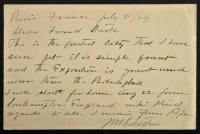 Paris France July 11, 89
Dear Friend
This is the greatest City that I have
seen yet it is simple grand
and the Exposition is grand much
nicer then the Philadelphia
I will start for home Aug 22 from
Southampton England, with Kind
regards to all I remain yours